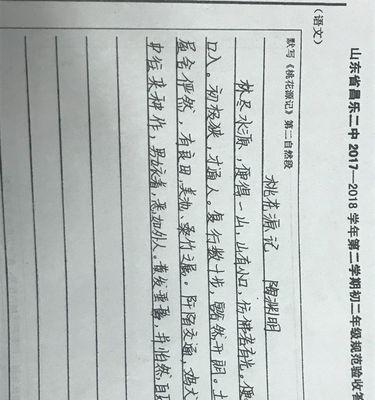 山东省昌乐二中 2017—2018 学年第二学期初二年级规范验收答
(语文)
默写《桃花源记》第二自然段
桃花源记 陶渊明
林尽水源，便得一山，山有小口，仿佛若有光。便
口入。初极狭，才通人。复行数十步，豁然开朗。土
屋舍俨然，有良田、美池、桑竹之属。阡陌交通，鸡犬
中往来种作，男女衣着，悉如外人。黄发垂髫，并怡然自